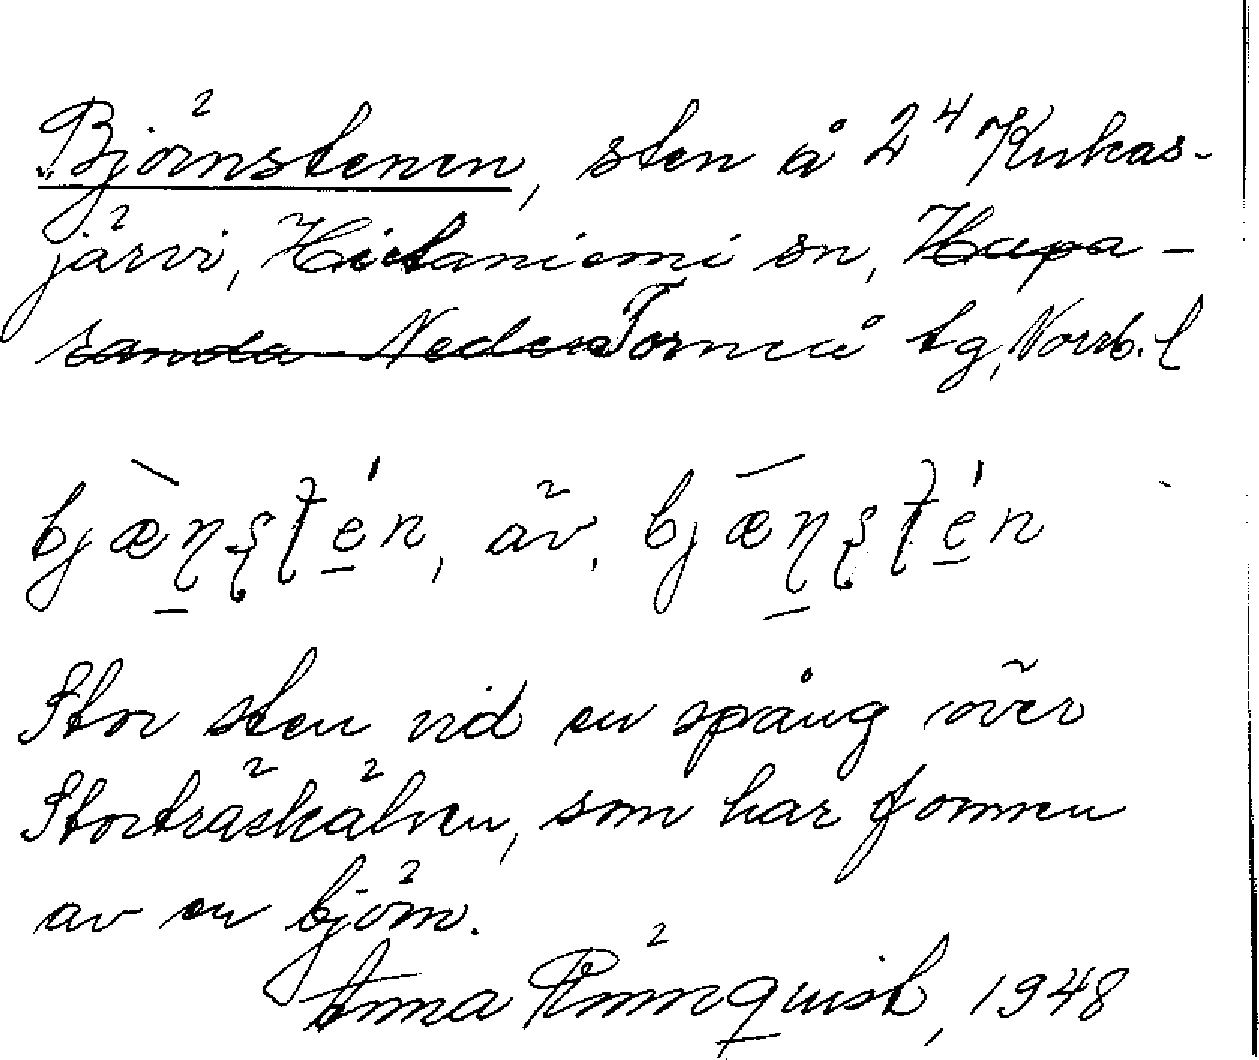 "Björnstenen, sten å 2⁴ Kukas-
järvi, Hietaniemi sn, Hapa-
randa-Neder Torneå tg, Norrb. l
bjæ̀ṇṣtén, äv. bjǣṇṣtén
Stor sten vid en spång över
Storträskälven, som har formen
av en björn.
Anna Rönnquist, 1948